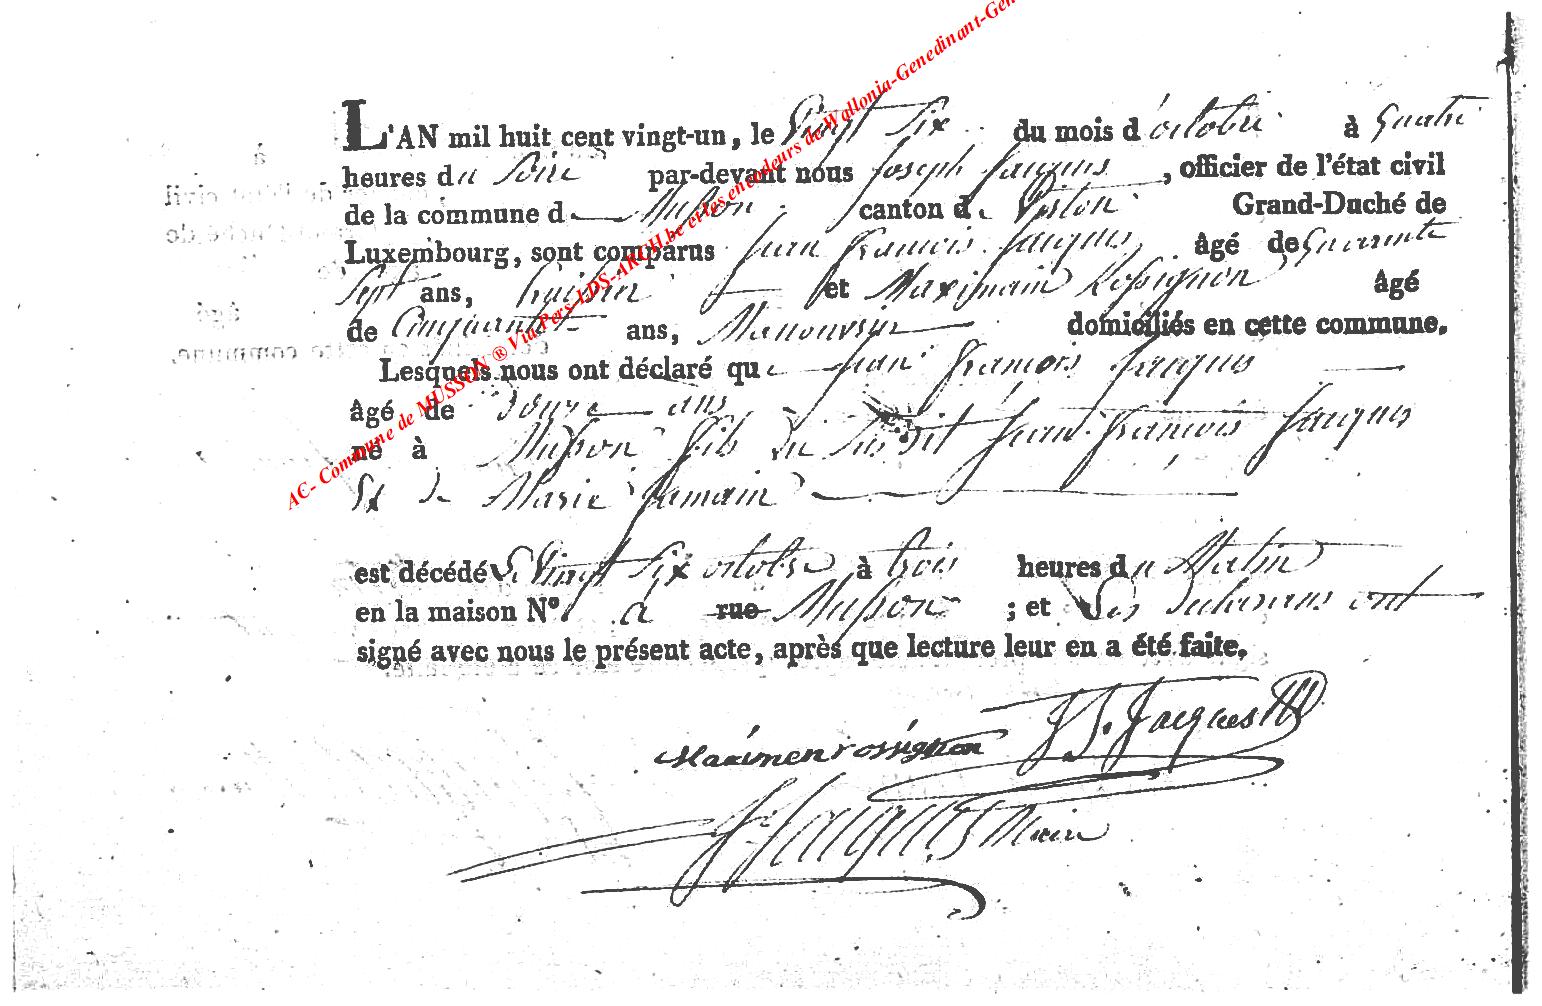 L'AN mil huit cent vingt-un, le Vingt Six du mois d'octobre à quatre
heures du Soire par-devant nous Joseph Jacques, officier de l'état civil
de la commune de Musson canton de Virton Grand-Duché de
Luxembourg, sont comparus Jean François Jacques âgé de quarante
Sept ans, huissier et Maximain Rossignon âgé
de Cinquante ans, Manouvrier domiciliés en cette commune.
Lesquels nous ont déclaré que Jean François Jacques
âgé de Douze ans
né à Musson fils du Susdit Jean François Jacques
Et de Marie Jamain
est décédé le Vingt Six octobre à trois heures du Matin
en la maison N° à rue Musson ; et Les Declarans ont
signé avec nous le présent acte, après que lecture leur en a été faite.
J. f. Jacques
Maximen rossignon
J Jacques Maire
AC- Commune de MUSSON ® Via Pers-LDS-ARCH.be et les encodeurs de Wallonia-Genedinant-Gen